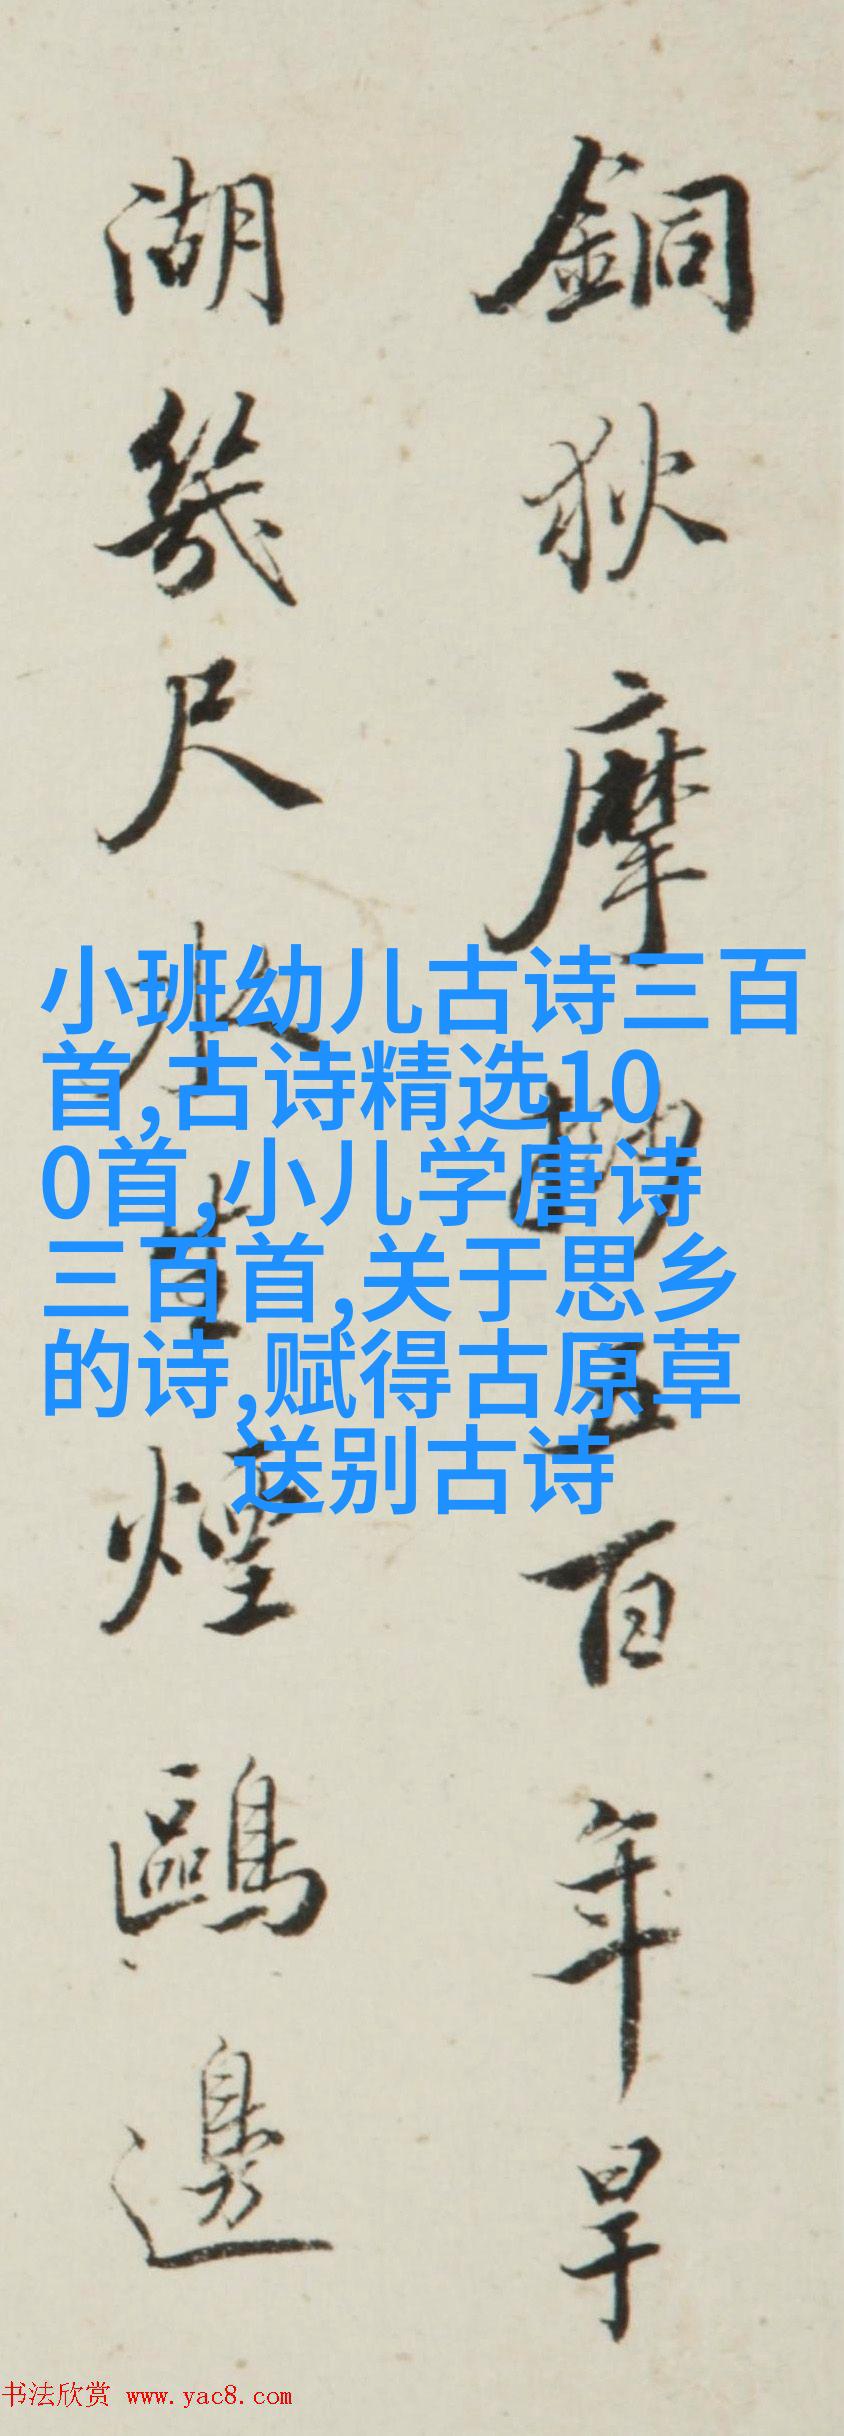 銅狄摩挲五百年旱
湖幾尺水生煙鷗邊
小班幼儿古诗三百
首,古诗精选10
0首,小儿学唐诗
三百首,关于思乡
的诗,赋得古原草
送别古诗
书法欣赏 www.yac8.com